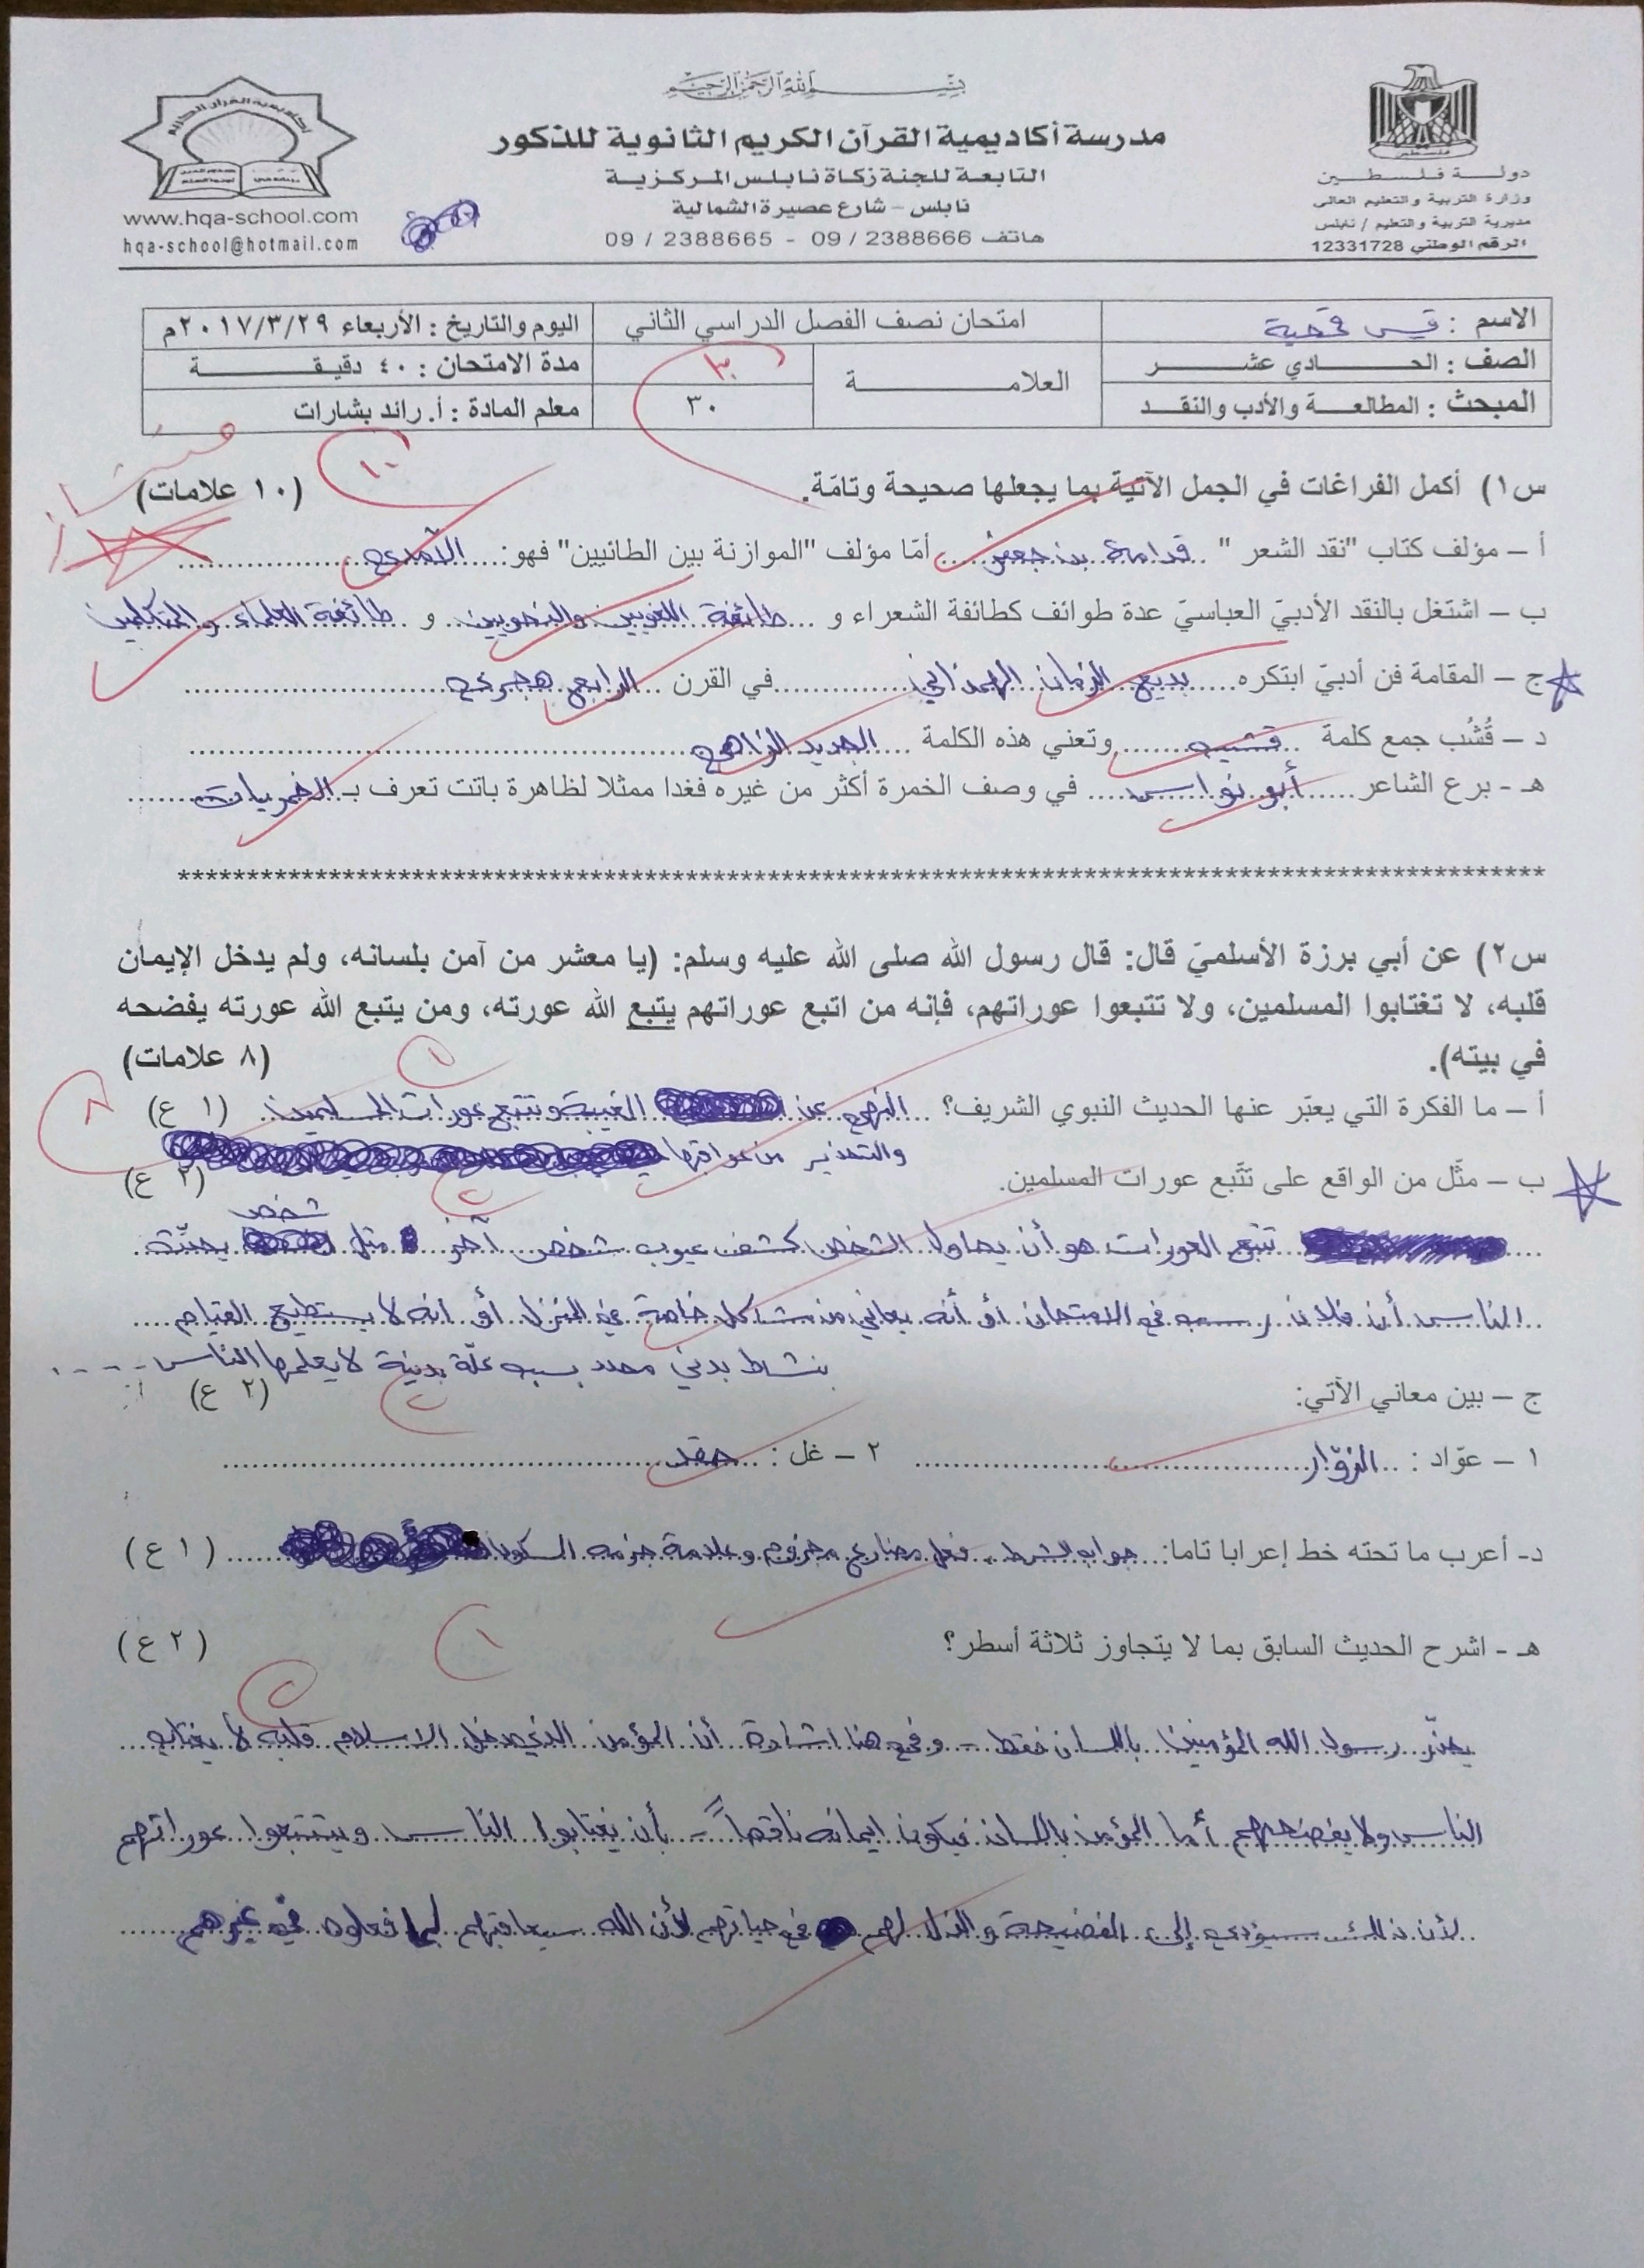 بسم الله الرحمن الرحيم
مدرسة أكاديمية القرآن الكريم الثانوية للذكور
التابعة للجنة زكاة نابلس المركزية
نابلس - شارع عصيرة الشمالية
هاتف 2388666 / 09 - 2388665 / 09
دولة فلسطين
وزارة التربية والتعليم العالي
مديرية التربية والتعليم / نابلس
الرقم الوطني 12331728
فلسطين
أكاديمية القرآن الكريم
www.hqa-school.com
hqa-school@hotmail.com
الاسم : قيس قمحية
امتحان نصف الفصل الدراسي الثاني
اليوم والتاريخ : الأربعاء ٢٠١٧/٣/٢٩م
الصف : الحادي عشر
العلامة
٣٠
٣٠
مدة الامتحان : ٤٠ دقيقة
المبحث : المطالعة والأدب والنقد
معلم المادة : أ. رائد بشارات
١٠
س١) أكمل الفراغات في الجمل الآتية بما يجعلها صحيحة وتامّة. (١٠ علامات)
أ – مؤلف كتاب "نقد الشعر " قدامة بن جعفر أمّا مؤلف "الموازنة بين الطائيين" فهو: الآمدي
ب – اشتغل بالنقد الأدبيّ العباسيّ عدة طوائف كطائفة الشعراء و طائفة اللغويين والنحويين و طائفة العلماء والمتكلمين
ج – المقامة فن أدبيّ ابتكره بديع الزمان الهمذاني في القرن الرابع هجري
د – قُشُب جمع كلمة قشيب وتعني هذه الكلمة الجديد الزاهي
هـ - برع الشاعر أبو نواس في وصف الخمرة أكثر من غيره فغدا ممثلا لظاهرة باتت تعرف بـ الخمريات
************
س٢) عن أبي برزة الأسلميّ قال: قال رسول الله صلى الله عليه وسلم: (يا معشر من آمن بلسانه، ولم يدخل الإيمان
قلبه، لا تغتابوا المسلمين، ولا تتبعوا عوراتهم، فإنه من اتبع عوراتهم يتبع الله عورته، ومن يتبع الله عورته يفضحه
في بيته). (٨ علامات)
٨
١
أ – ما الفكرة التي يعبّر عنها الحديث النبوي الشريف؟ النهي عن الغيبة وتتبع عورات المسلمين (١ ع)
والتحذير من عواقبها
٢
ب – مثّل من الواقع على تتّبع عورات المسلمين. (٢ ع)
تتبع العورات هو أن يحاول الشخص كشف عيوب شخص آخر مثل شخص يحدّث
الناس أن فلان رسب في الامتحان أو أنه يعاني من مشاكل خاصة في المنزل أو انه لا يستطيع القيام
بنشاط بدني محدد بسبب علّة بدنية لا يعلمها الناس ....
٢
ج – بين معاني الآتي: (٢ ع)
١ – عوّاد : الزوّار ٢ – غل : حقد
د- أعرب ما تحته خط إعرابا تاما: جواب الشرط، فعل مضارع مجزوم وعلامة جزمه السكون (١ ع)
١
هـ - اشرح الحديث السابق بما لا يتجاوز ثلاثة أسطر؟ (٢ ع)
٢
يحذّر رسول الله المؤمنين باللسان فقط - وفي هنا اشارة أن المؤمن الذي دخل الاسلام قلبه لا يغتاب
الناس ولا يفضحهم أما المؤمن باللسان فيكون ايمانه ناقصاً - بأن يغتابوا الناس ويتتبعوا عوراتهم
لأن ذلك سيؤدي إلى الفضيحة والذل لهم في حياتهم لأن الله سيعاقبهم لما فعلوه في غيرهم